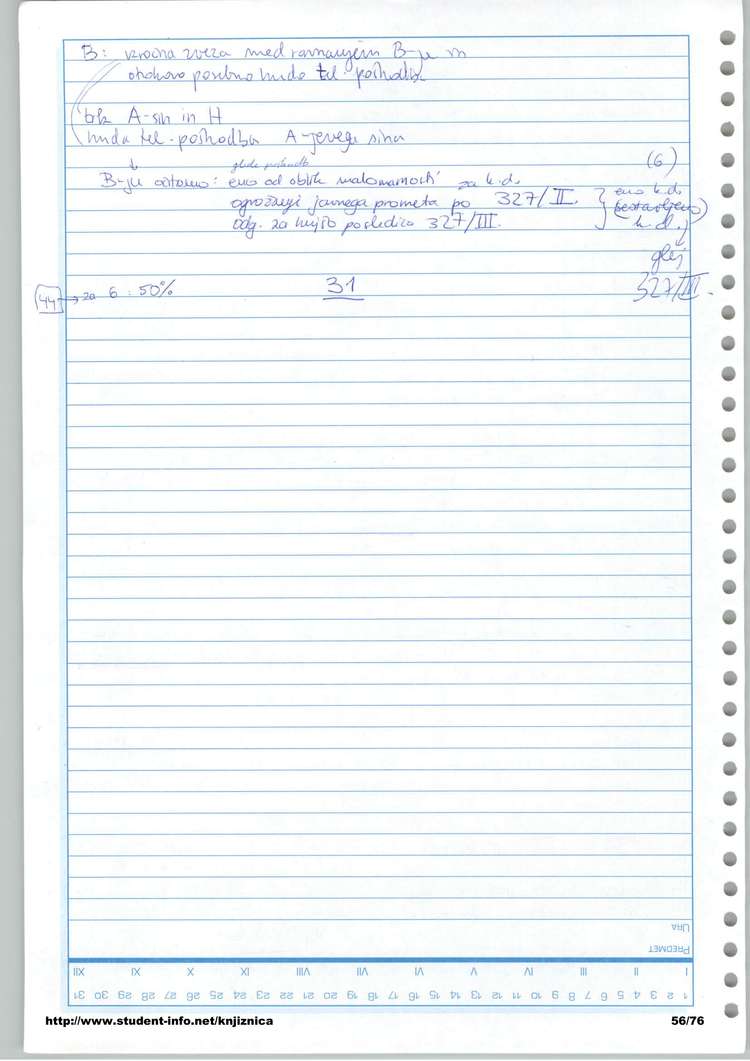 B: vzročna zveza med ravnanjem B-ja in
otrokovo posebno hudo tel. poškodbo
trk A-sin in H
huda tel. poškodba A-jevega sina
↓ glede
(6)
B-ju očitamo: eno od oblik malomarnosti za k.d.
ogrožanje javnega prometa po 327/II.
odg. za hujšo posledico 327/III.
eno k.d.
(sestavljeno)
k.d.
glej
327/III.
44 → za 6 : 50%
31
URA
PREDMET
I II III IV V VI VII VIII IX X XI XII
1 2 3 4 5 6 7 8 9 10 11 12 13 14 15 16 17 18 19 20 21 22 23 24 25 26 27 28 29 30 31
http://www.student-info.net/knjiznica
56/76